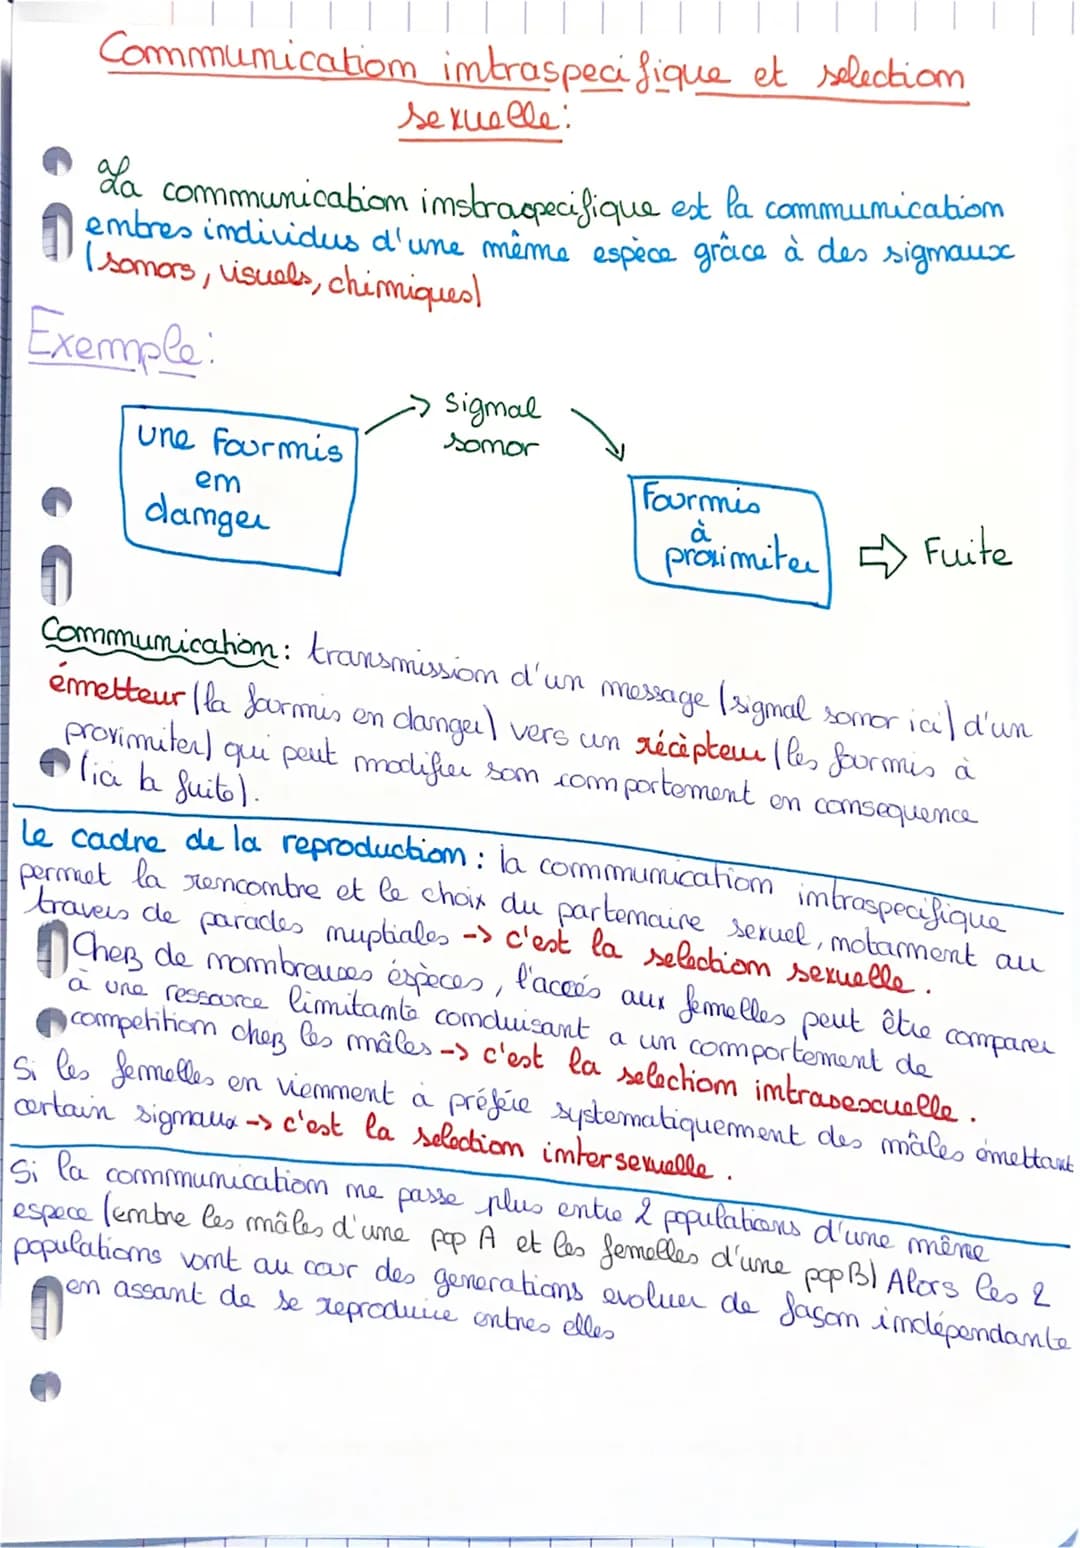 Communication intraspecifique et selection
sexuelle:
La communication instraspecifique est la communication
entres individus d'une même espèce grâce à des signaux
(sonors, visuels, chimiques)
Exemple:
une Fourmis
en
danger
→ Signal
sonor
Fourmis
à
proximiter
⇒ Fuite
Communication: transmission d'un message (signal sonor ici) d'un
émetteur (la fourmis en danger) vers un récèpteur (les fourmis à
proximiter) qui peut modifier son comportement en consequence
(ici la fuite).
Le cadre de la reproduction: la communication intraspecifique
permet la rencontre et le choix du partenaire sexuel, notamment au
travers de parades nuptiales -> c'est la selection sexuelle.
Chez de nombreuses éspèces, l'accés aux femelles peut être comparer
à une ressource limitante conduisant a un comportement de
competition chez les mâles -> c'est la selection intrasexcuelle.
Si les femelles en viennent a préfére systematiquement des mâles émettant
certain signaux -> c'est la selection intersexuelle.
Si la communication ne passe plus entre 2 populations d'une même
espece (entre les mâles d'une pop A et les femelles d'une pop B) Alors les 2
populations vont au cour des generations evoluer de façon indépendante
en assant de se reproduire entres elles